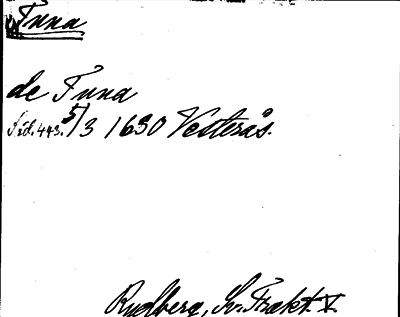 Tuna
de Tuna
Sid. 443. 5/3 1630 Vesterås.
Rydberg, Sv. Trakt. V.